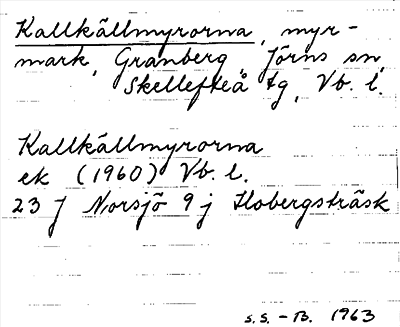 Kallkällmyrorna, myr-
mark, Granberg, Jörns sn,
Skellefteå tg, Vb. l.
Kallkällmyrorna
ek (1960) Vb. l.
23 J Norsjö 9 j Hobergsträsk
S.S. - B. 1963